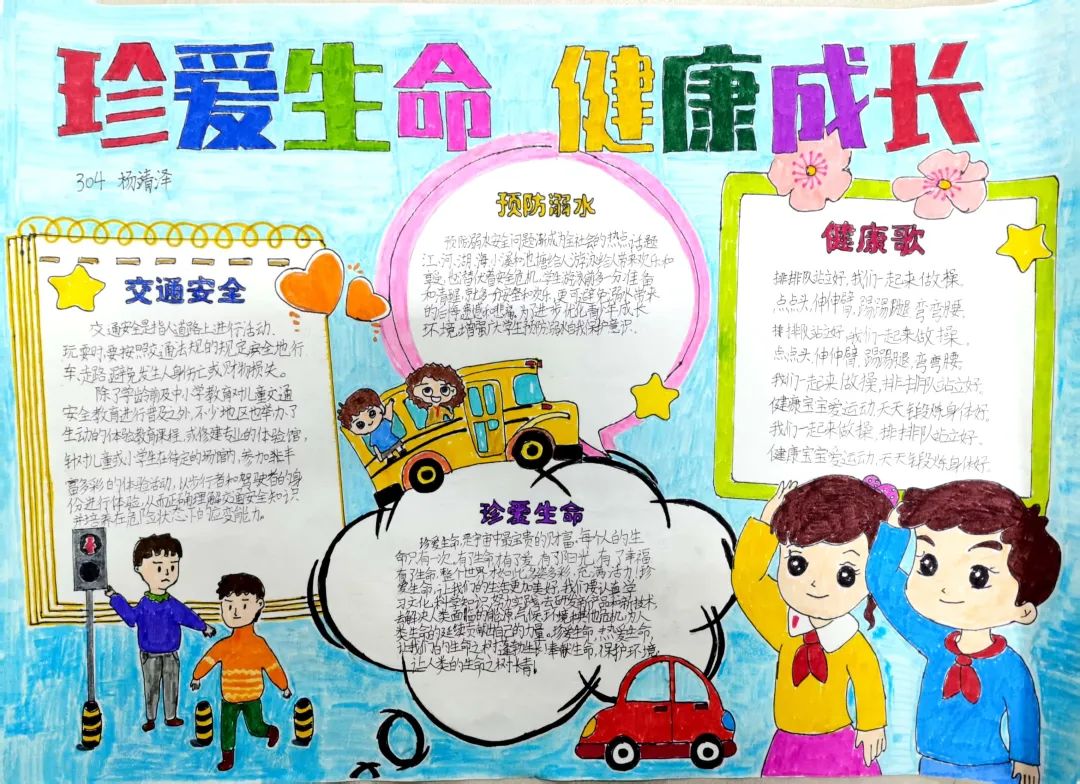 珍爱生命 健康成长
304 杨清泽
交通安全
交通安全是指人道路上进行活动、
玩耍时,要按照交通法规的规定,安全地行
车、走路,避免发生人身伤亡或财物损失。
除了学龄前及中小学教育对儿童交通
安全教育进行普及之外,不少地区也举办了
生动的体验教育课程,或修建专业的体验馆,
针对儿童或小学生在特定的场馆内,参加些丰
富多彩的体验活动,从步行者和驾驶者的身
份进行体验,从而正确理解交通安全知识
并培养在危险状态下的应变能力。
预防溺水
预防溺水安全问题渐成为全社会的热点话题
江、河、湖、海、小溪和池塘给人游泳给人带来欢乐和
享受,也潜伏着安全危机,学生游泳前多一分准备
和清醒,就多一分安全和欢乐,更可避免溺水带来
的后悔遗憾和悲痛,为了进一步优化青少年成长
环境,增强广大学生预防溺水自我保护意识。
珍爱生命
珍爱生命是宇宙中最宝贵的财富,每个人的生
命只有一次,有了生命,有了爱,有了阳光,有了幸福
有了生命,整个世界才变化多姿多彩,充满活力!珍
爱生命,让我们的生活更加美好,我们要认真学
习文化、科学知识,努力
去解决人类面临的能源、气候、环境和其他危机,为人
类生命的延续贡献出自己的力量。珍爱生命,热爱生命,
让我们的生命之树蓬勃生长!奉献生命,保护环境,
让人类的生命之树长青!
健康歌
排排队站立好,我们一起来做操,
点点头伸伸臂,踢踢腿弯弯腰,
排排队站立好,我们一起来做操,
点点头伸伸臂,踢踢腿,弯弯腰。
我们一起来做操,排排队站立好。
健康宝宝爱运动,天天锻炼身体好。
我们一起来做操,排排队站立好、
健康宝宝爱运动,天天锻炼身体好.